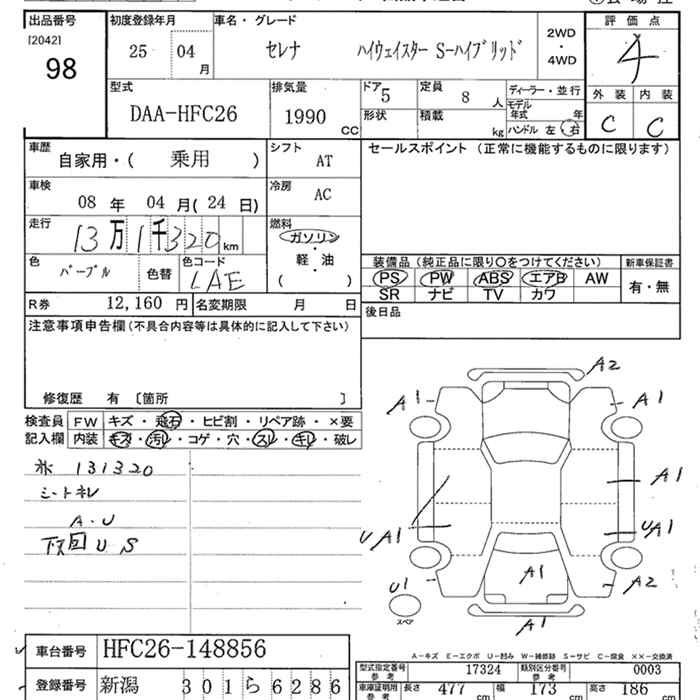 出品番号
[2042]
98
初度登録年月
25 04 月
車名・グレード
セレナ ハイウェイスター S-ハイブリッド
2WD
・
4WD
評価点
4
外装 内装
C C
型式
DAA-HFC26
排気量
1990 CC
ドア 5
形状
定員 8 人
積載 kg
ディーラー・並行
モデル年式 年
ハンドル 左 右
車歴
自家用・( 乗用 )
シフト
AT
車検
08 年 04 月(24 日)
冷房
AC
走行
13万1千320 km
燃料
ガソリン
・
軽・油
( )
色
パープル
色替
色コード
LAE
R券 12,160 円
名変期限 月 日
セールスポイント (正常に機能するものに限ります)
装備品(純正品に限り〇をつけてください)
PS PW ABS エアB AW
SR ナビ TV カワ
新車保証書
有・無
後日品
注意事項申告欄(不具合内容等は具体的に記入して下さい)
修復歴 有 〔箇所 〕
検査員記入欄
FW キズ・飛石・ヒビ割・リペア跡・×要
内装 キズ・汚レ・コゲ・穴・スレ・キレ・破レ
131320
シートキレ
A・U
下回 U S
A2
A1
A1
A1
UA1
UA1
A1
A2
U1
スペア
A1
A-キズ E-エクボ U-凹み W-補修跡 S-サビ C-腐食 ××-交換済
車台番号 HFC26-148856
登録番号 新潟 301 ら 6286
型式指定番号 参考 17324
類別区分番号 参考 0003
車庫証明用 参考 長さ 477 cm 幅 173 cm 高さ 186 cm